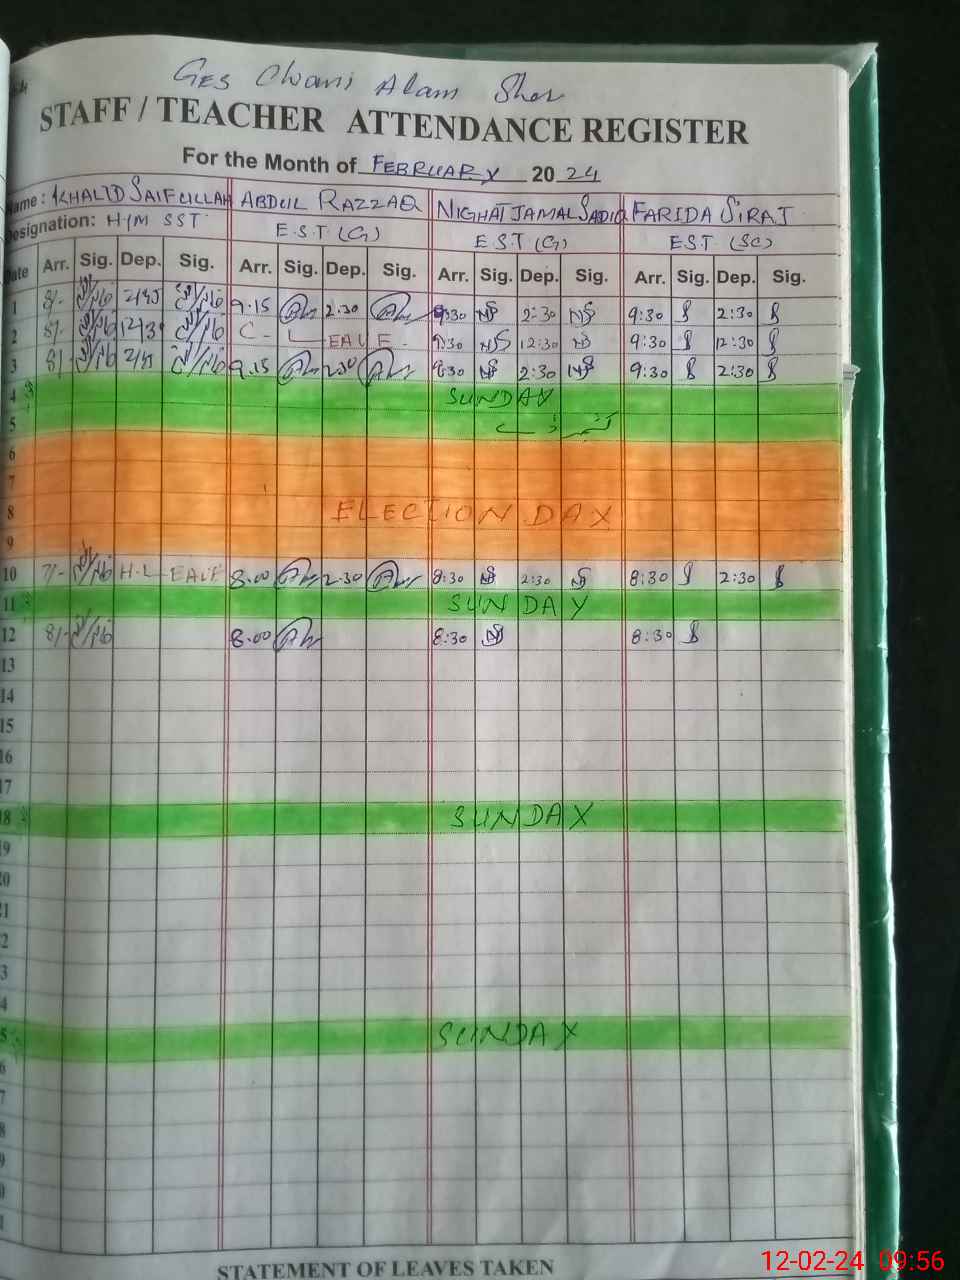 GES Chani Alam Sher
STAFF / TEACHER ATTENDANCE REGISTER
For the Month of FEBRUARY 20 24
Name: KHALID SAIFULLAH ABDUL RAZZAQ NIGHAT JAMAL SADIQ FARIDA SIRAJ
Designation: H/M SST E.S.T (G) E.S.T (G) E.S.T (SC)
Date Arr. Sig. Dep. Sig. Arr. Sig. Dep. Sig. Arr. Sig. Dep. Sig. Arr. Sig. Dep. Sig.
1 8/- 2/45 9.15 2.30 9:30 NS 2:30 NS 9:30 2:30
2 8/- 12/30 C - LEAVE - 9:30 NS 12:30 NS 9:30 12:30
3 8/- 9.15 2.30 9:30 NS 2:30 NS 9:30 2:30
4 SUNDAY
5
6
7
8 ELECTION DAY
9
10 7/- H.LEAVE 8.00 2.30 8:30 NS 2:30 NS 8:30 2:30
11 SUNDAY
12 8/- 8.00 8:30 NS 8:30
13
14
15
16
17
18 SUNDAY
19
20
21
2
3
4
5 SUNDAY
6
7
8
9
0
1
STATEMENT OF LEAVES TAKEN
12-02-24 09:56